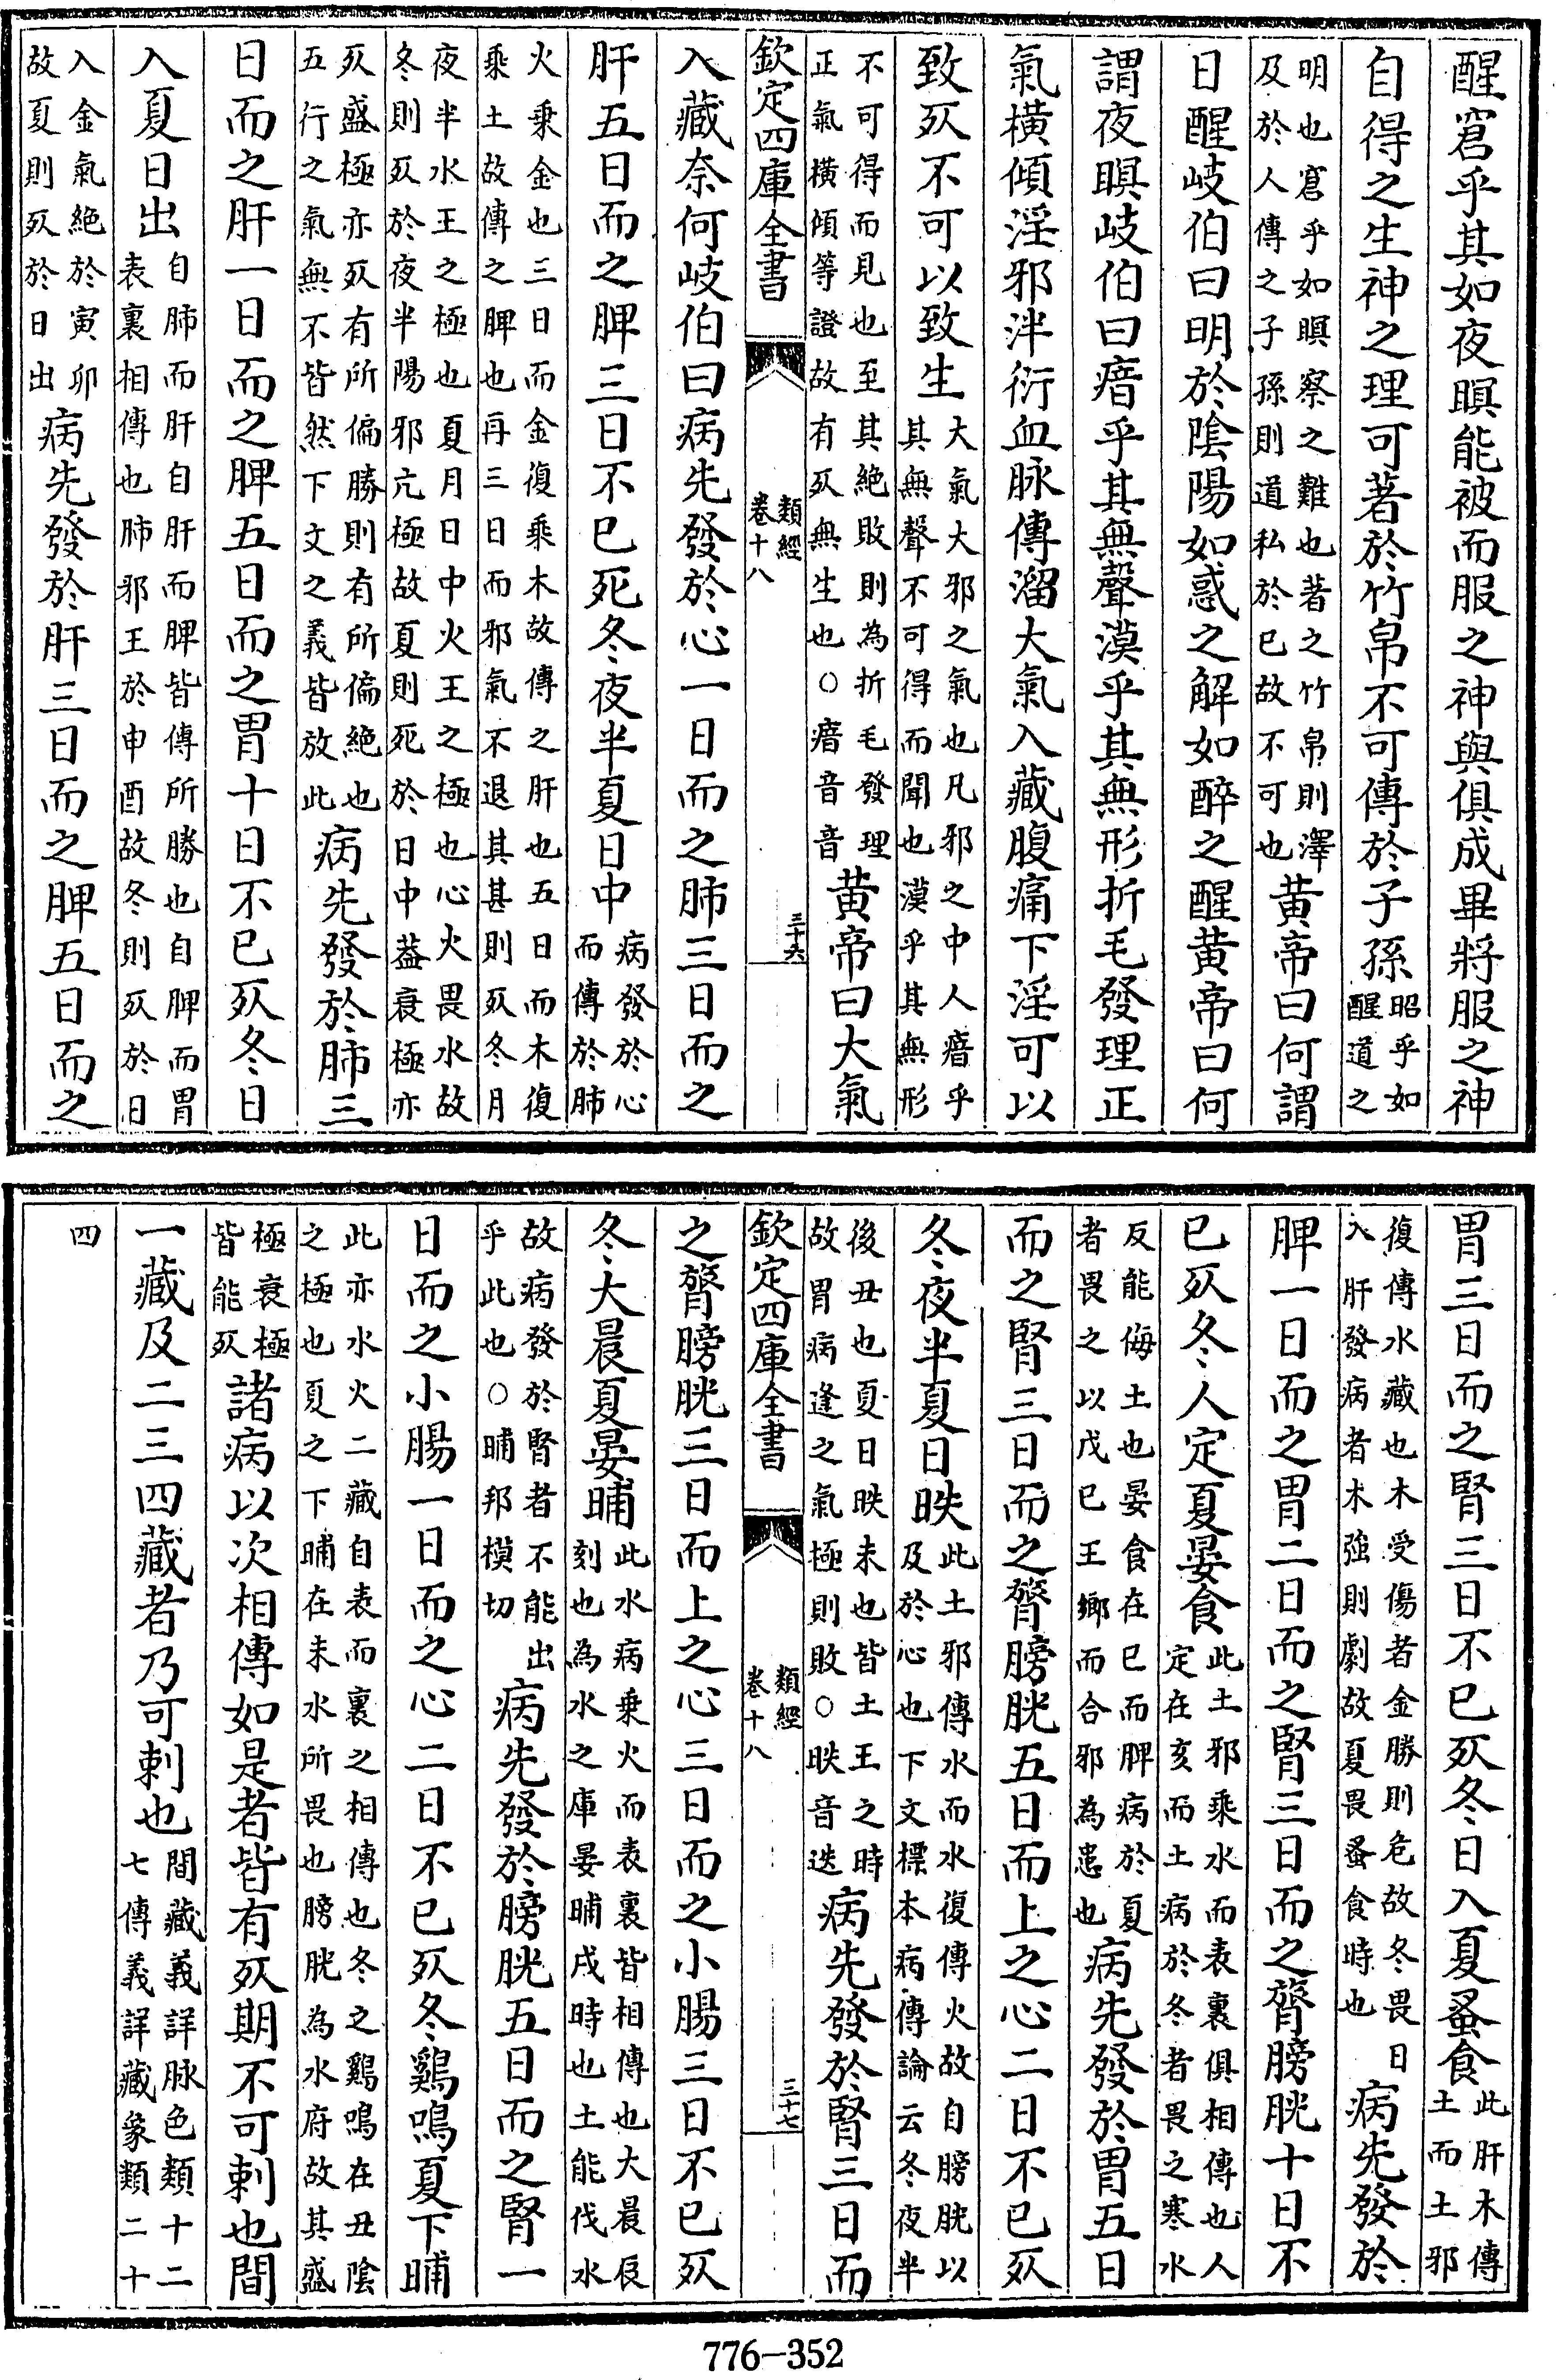 醒窘乎其如夜瞑能被而服之神與俱成畢將服之神
自得之生神之理可著於竹帛不可傳於子孫
昭乎如
醒道之
明也窘乎如瞑察之難也著之竹帛則澤
及於人傳之子孫則道私於已故不可也
黄帝曰何謂
日醒岐伯曰明於隂陽如惑之解如醉之醒黄帝曰何
謂夜瞑岐伯曰瘖乎其無聲漠乎其無形折毛發理正
氣橫傾淫邪泮衍血脉傳溜大氣入藏腹痛下淫可以
致死不可以致生
大氣大邪之氣也凡邪之中人瘖乎
其無聲不可得而聞也漠乎其無形
不可得而見也至其絶敗則為折毛發理
正氣橫傾等證故有死無生也○瘖音音
黄帝曰大氣
欽定四庫全書
類經
卷十八
三十六
入藏奈何岐伯曰病先發於心一日而之肺三日而之
肝五日而之脾三日不已死冬夜半夏日中
病發於心
而傳於肺
火乗金也三日而金復乗木故傳之肝也五日而木復
乗土故傳之脾也再三日而邪氣不退其甚則死冬月
夜半水王之極也夏月日中火王之極也心火畏水故
冬則死於夜半陽邪亢極故夏則死於日中葢衰極亦
死盛極亦死有所偏勝則有所偏絶也
五行之氣無不皆然下文之義皆放此
病先發於肺三
日而之肝一日而之脾五日而之胃十日不已死冬日
入夏日出
自肺而肝自肝而脾皆傳所勝也自脾而胃
表裏相傳也肺邪王於申酉故冬則死於日
入金氣絶於寅卯
故夏則死於日出
病先發於肝三日而之脾五日而之
胃三日而之腎三日不已死冬日入夏蚤食
此肝木傳
土而土邪
復傳水藏也木受傷者金勝則危故冬畏日
入肝發病者木強則劇故夏畏蚤食時也
病先發於
脾一日而之胃二日而之腎三日而之膂膀胱十日不
已死冬人定夏晏食
此土邪乘水而表裏俱相傳也人
定在亥而土病於冬者畏之寒水
反能侮土也晏食在巳而脾病於夏
者畏之以戊巳王鄉而合邪為患也
病先發於胃五日
而之腎三日而之膂膀胱五日而上之心二日不已死
冬夜半夏日昳
此土邪傳水而水復傳火故自膀胱以
及於心也下文標本病傳論云冬夜半
後丑也夏日昳未也皆土王之時
故胃病逢之氣極則敗○昳音迭
病先發於腎三日而
欽定四庫全書
類經
卷十八
三十七
之膂膀胱三日而上之心三日而之小腸三日不已死
冬大晨夏晏晡
此水病乗火而表裏皆相傳也大晨辰
刻也為水之庫晏晡戌時也土能伐水
故病發於腎者不能出
乎此也○晡邦模切
病先發於膀胱五日而之腎一
日而之小腸一日而之心二日不已死冬鷄鳴夏下晡
此亦水火二藏自表而裏之相傳也冬之鷄鳴在丑陰
之極也夏之下晡在未水所畏也膀胱為水府故其盛
極衰極
皆能死
諸病以次相傳如是者皆有死期不可刺也間
一藏及二三四藏者乃可刺也
間藏義詳脉色類十二
七傳義詳藏象類二十
四
776—352